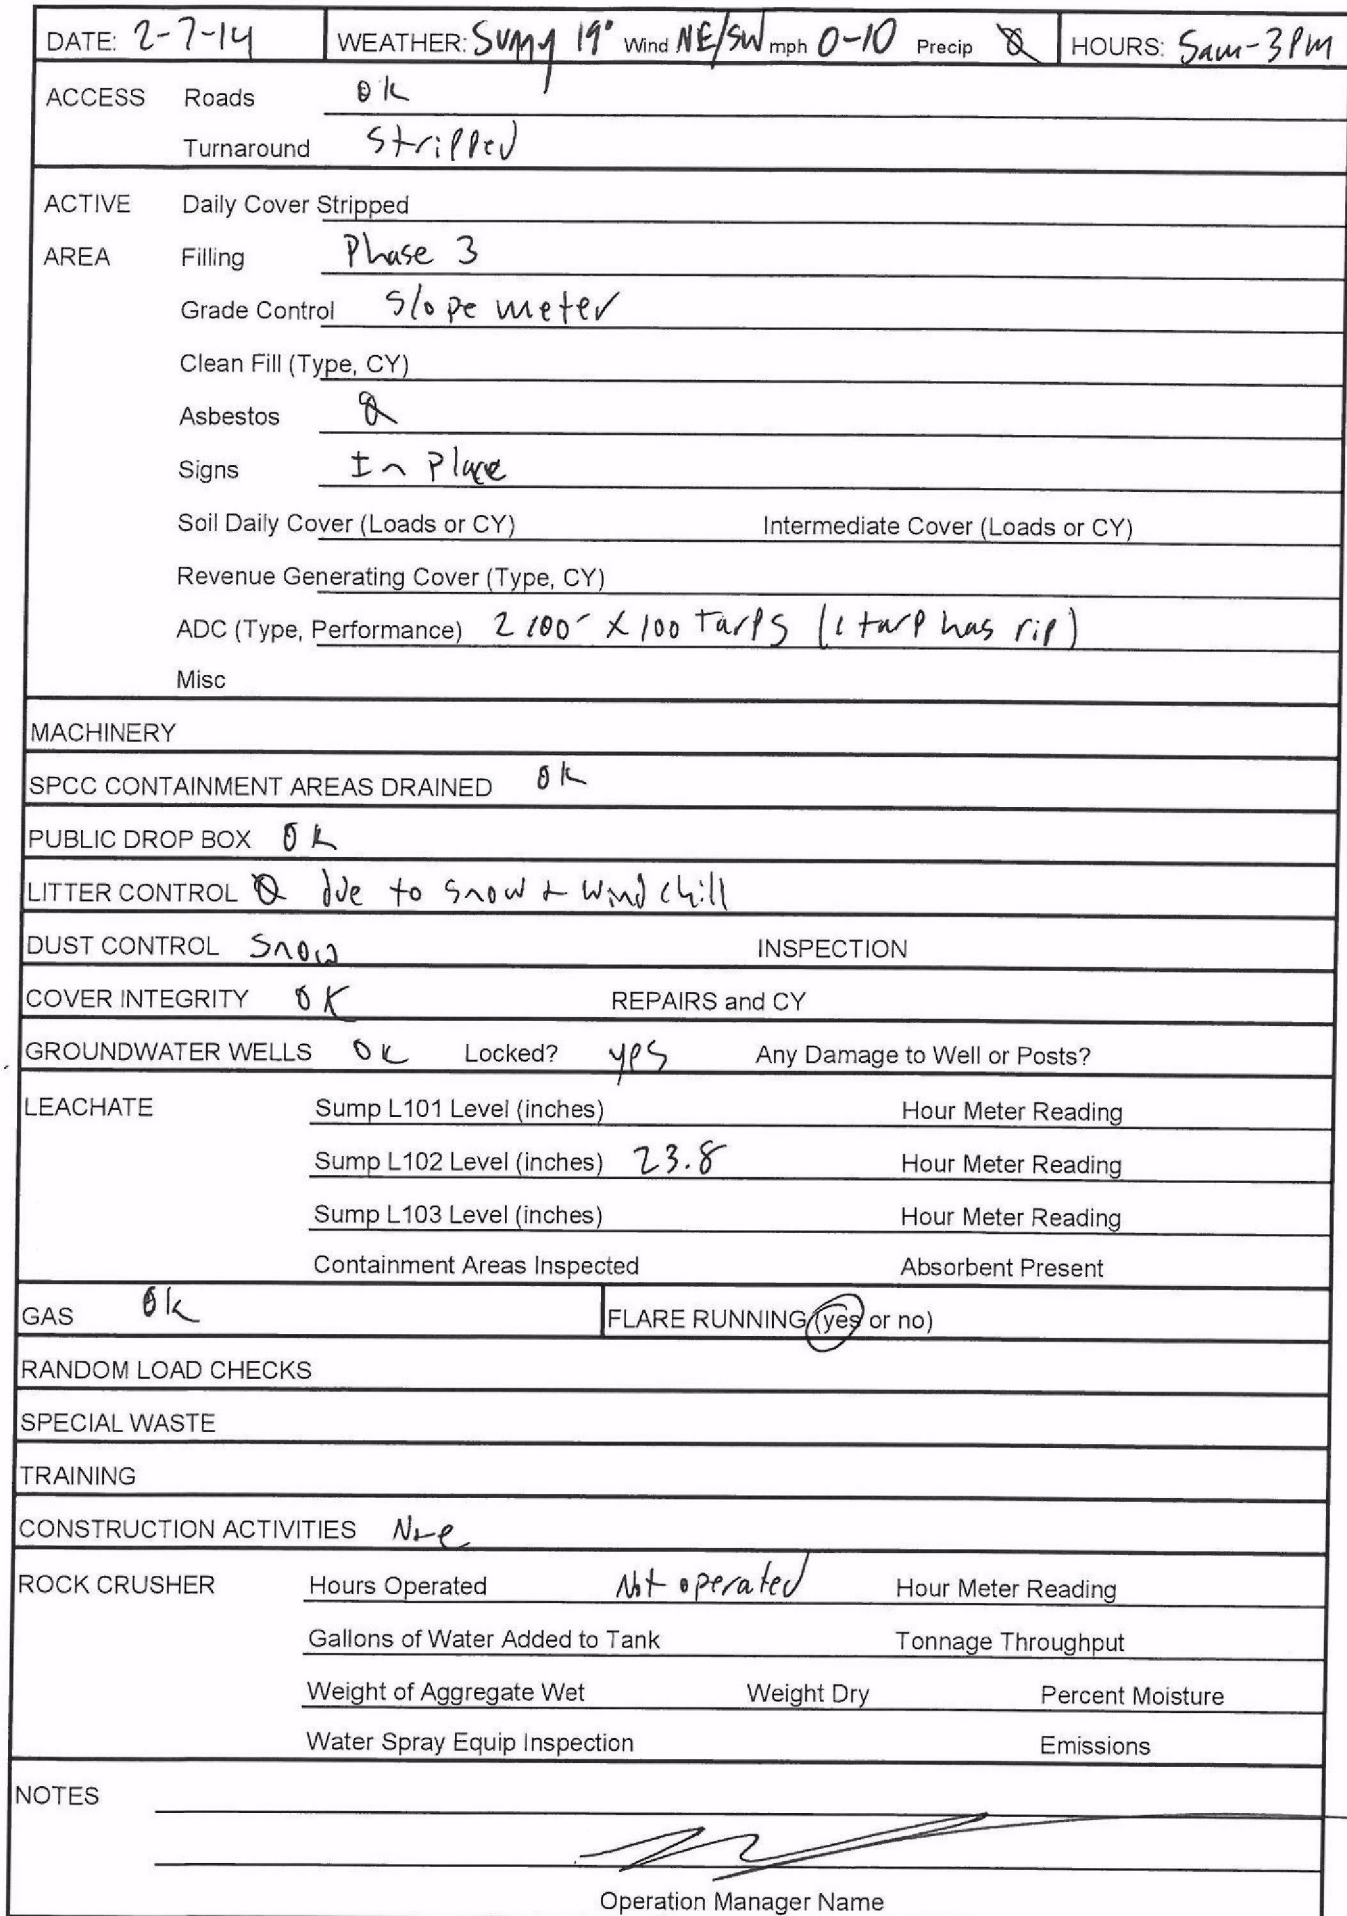 DATE: 2-7-14 WEATHER: Sunny 19° Wind NE/SW mph 0-10 Precip Ø HOURS: 5am-3PM
ACCESS Roads OK
Turnaround Stripped
ACTIVE Daily Cover Stripped
AREA Filling Phase 3
Grade Control Slope meter
Clean Fill (Type, CY)
Asbestos Ø
Signs In Place
Soil Daily Cover (Loads or CY) Intermediate Cover (Loads or CY)
Revenue Generating Cover (Type, CY)
ADC (Type, Performance) 2 100' X 100 Tarps (1 tarp has rip)
Misc
MACHINERY
SPCC CONTAINMENT AREAS DRAINED OK
PUBLIC DROP BOX OK
LITTER CONTROL Ø due to snow + wind chill
DUST CONTROL Snow INSPECTION
COVER INTEGRITY OK REPAIRS and CY
GROUNDWATER WELLS OK Locked? yes Any Damage to Well or Posts?
LEACHATE Sump L101 Level (inches) Hour Meter Reading
Sump L102 Level (inches) 23.8 Hour Meter Reading
Sump L103 Level (inches) Hour Meter Reading
Containment Areas Inspected Absorbent Present
GAS OK FLARE RUNNING (yes or no)
RANDOM LOAD CHECKS
SPECIAL WASTE
TRAINING
CONSTRUCTION ACTIVITIES None
ROCK CRUSHER Hours Operated Not operated Hour Meter Reading
Gallons of Water Added to Tank Tonnage Throughput
Weight of Aggregate Wet Weight Dry Percent Moisture
Water Spray Equip Inspection Emissions
NOTES
Operation Manager Name